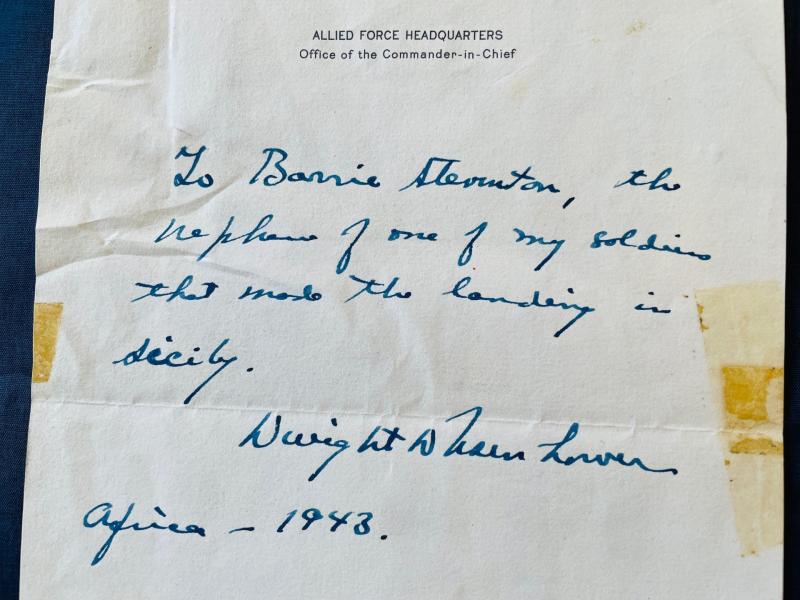 ALLIED FORCE HEADQUARTERS
Office of the Commander-in-Chief
To Barrie Stevinton, the
nephew of one of my soldiers
that made the landing in
Sicily.
Dwight D Eisenhower
Africa - 1943.